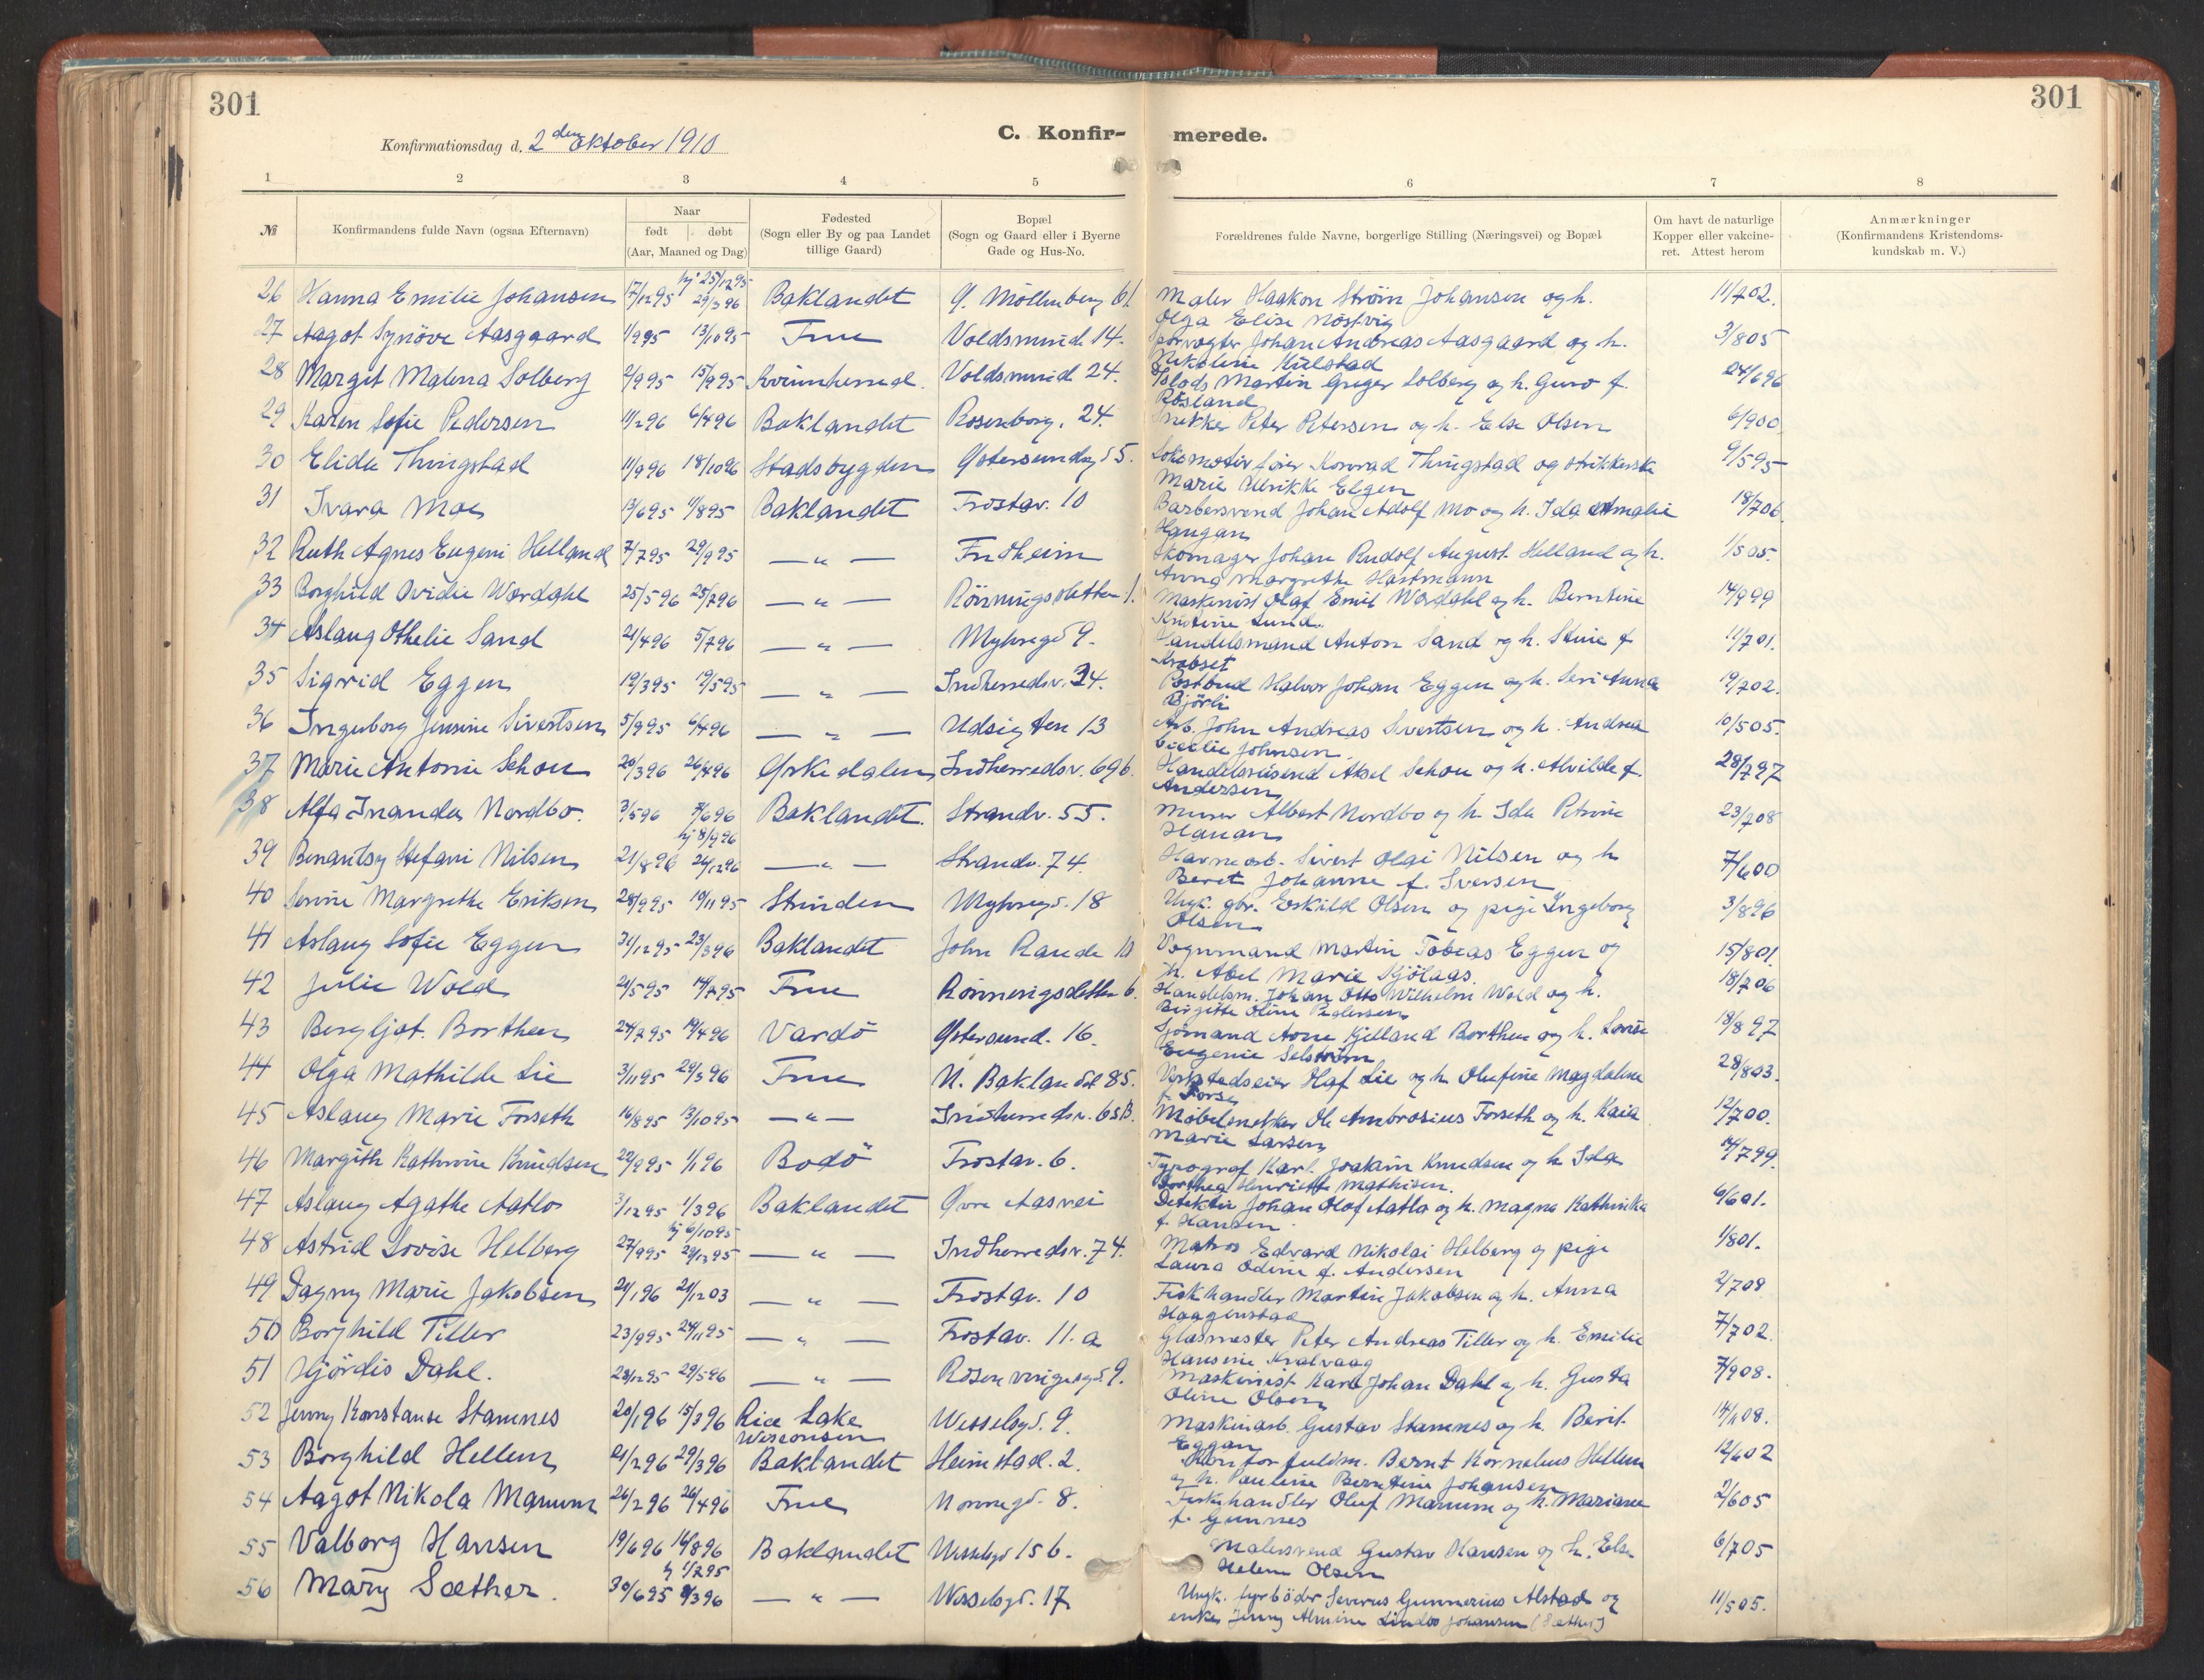 301
301
Konfirmationsdag d. 2den Oktober 1910
C. Konfir-
merede.
1 2 3 4 5 6 7 8
№
Konfirmandens fulde Navn (ogsaa Efternavn)
Naar
født døbt
(Aar, Maaned og Dag)
Fødested
(Sogn eller By og paa Landet
tillige Gaard)
Bopæl
(Sogn og Gaard eller i Byerne
Gade og Hus-No.
Forældrenes fulde Navne, borgerlige Stilling (Næringsvei) og Bopæl
Om havt de naturlige
Kopper eller vakcine-
ret. Attest herom
Anmærkninger
(Konfirmandens Kristendoms-
kundskab m. V.)
26 Hanna Emilie Johansen 17/1295 hj. 25/1295 29/396 Baklandet Ø. Möllenberg 61 Maler Haakon Ström Johansen og h. 11/702.
Olga Elise Möstvig
27 Aagot Synöve Aasgaard 1/995 13/1095 Frue Voldsmind 14. Sporvogter Johan Andreas Aasgaard og h. 3/805
Nikoline Kulstad
28 Margit Malena Solberg 2/995 15/995 Kvinnherred. Voldsmind 24. Martin Greger Solberg og h. Guro f. 24/696
Rösland
29 Karen Sofie Pedersen 11/296 6/496 Baklandet Rosenborg. 24. Snekker Peter Petersen og h. Else Olsen 6/900
30 Elida Thingstad 11/996 18/1096 Stadsbygden Østersundsg 5. Lokomotivfører Konrad Thingstad og strikkerske 9/595
Marie Ulrikke Elgen
31 Ivara Moe 13/695 11/895 Baklandet Frostav. 10 Barbersvend Johan Adolf Mo og h. Ida Amalie 18/706.
Haugan
32 Ruth Agnes Eugeni Helland 7/795 29/995 — " — Fridheim Skomager Johan Rudolf August Helland og h. 1/505.
Anna Margrethe Hartmann
33 Borghild Ovidie Wærdahl 25/596 25/796 — " — Rönningsletten 1. Maskinist Olaf Emil Wærdahl og h. Berntine 14/999
Kristine Lund.
34 Aslaug Othelie Sand 21/496 5/796 — " — Myhregd 9. Handelsmand Anton Sand og h. Stine f. 11/701.
Krabset
35 Sigrid Eggen 19/395 19/595 — " — Indherredsv. 34. Postbud Halvor Johan Eggen og h. Seri Anna 19/702.
Björli
36 Ingeborg Jensine Sivertsen 5/995 6/496 — " — Udsigten 13 Arb. John Andreas Sivertsen og h. Andrea 10/505.
Cecilie Johnsen
37 Marie Antonie Schou 20/396 26/496 Ørkedalen Indherredsv. 69b. Handelsreisend Aksel Schou og h. Alvilde f. 28/797
Andersen
38 Alfa Inanda Nordbo. 3/596 7/696 Baklandet. Strandv. 55. Murer Albert Nordbo og h. Ida Petrine 23/708
Hanan
39 Benantsy Stefani Nilsen 21/896 hj 8/996 26/1296 — " — Strandv. 74. Havnearb. Sivert Olai Nilsen og h 7/600
Beret Johanne f. Iversen
40 Serine Margrethe Eriksen 28/995 10/1195 Strinden Myhregd. 18 Ungk. gbr. Eskild Olsen og pige Ingeborg 3/896
Olsen
41 Aslaug Sofie Eggen 31/1295 23/396 Baklandet John Rande 10 Vognmand Martin Tobias Eggen og 15/801
h. Abel Marie Sjölaas.
42 Julie Wold 21/595 14/795 Frue Rönningsletten 6. Handelsm. Johan Otto Wilhelm Wold og h. 18/706
Birgitte Oline Pedersen
43 Bergljot Borthen 24/795 19/496 Vardö Østersund. 16. Sjömand Arne Kjelland Borthen og h. Lovise 18/897
Eugenie Selström
44 Olga Mathilde Lie 3/1195 29/396 Frue N. Baklandet 85. Verkstedseier Olaf Lie og h. Olufine Magdalene 28/803.
f. Fors
45 Aslaug Marie Forseth 16/895 13/1095 — " — Indherredsv. 65B. Möbelsnekker Ole Ambrosius Forseth og h. Kaia 12/700.
Marie Larsen
46 Margith Kathrine Knudsen 22/995 1/196 Bodö Frostav. 6. Typograf Karl Joakim Knudsen og h Ida 14/799.
Dorthea Henriette Mathisen.
47 Aslaug Agathe Aatlo 3/1295 1/396 Baklandet Øvre Aasvei Detektiv Johan Olaf Aatlo og h. Magna Kathinka 6/601.
f. Hansen
48 Astrid Lovise Helberg 27/995 hj 6/1095 29/1295 — " — Indherredsv. 74. Matros Edvard Nikolai Helberg og pige 1/801.
Laura Odine f. Andersen
49 Dagny Marie Jakobsen 21/196 21/1203 — " — Frostav. 10 Fiskhandler Martin Jakobsen og h. Anna 2/708
Haagenstad
50 Borghild Tiller 23/995 24/1195 — " — Frostav. 11.a Glasmester Peter Andreas Tiller og h. Emilie 7/702.
Hansine Kvalvaag
51 Hjördis Dahl. 28/1295 29/596 — " — Rosenvingesgd 9. Maskinist Karl Johan Dahl og h. Gusta 7/908.
Oline Olsen
52 Jenny Konstanse Stamnes 20/196 15/396 Rice Lake Wesselsgd. 9. Maskinarb. Gustav Stamnes og h. Berit 14/408.
Wisconsin Eggan
53 Borghild Hellem 21/296 29/396 Baklandet Heimstad. 2. Kontorfuldm. Bernt Kornelius Hellem 12/602
og h. Pauline Berntine Johansen
54 Aagot Nikola Manum 26/296 26/496 Frue Nonnegd. 8. Fiskehandler Oluf Manum og h. Mariane 2/605
f. Gunnes
55 Valborg Hansen 19/696 16/896 Baklandet Wesselsgd 15b. Malersvend Gustav Hansen og h. Else 6/705
Helene Olsen
56 Mary Sæther. 30/695 hj 1/795 8/396 — " — Wesselsgd. 17 Ungk. fyrböder Severus Gunnerius Alstad og 11/505.
enke Jenny Almine Lindbo Johansen (Sæther)